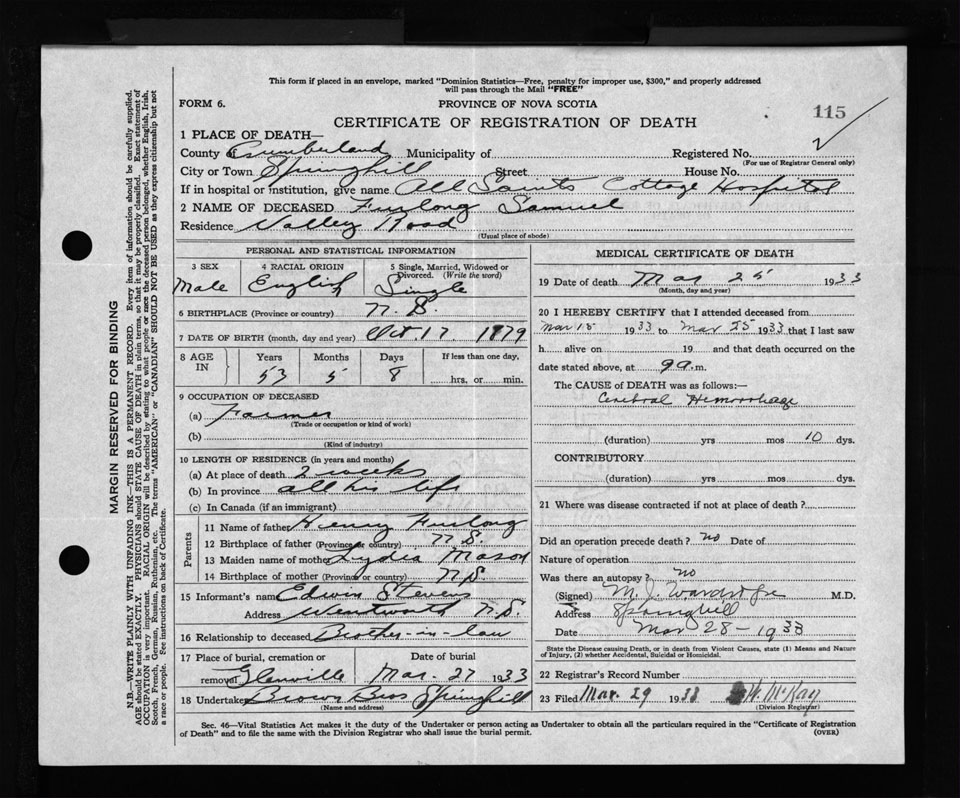 This form if placed in an envelope, marked "Dominion Statistics—Free, penalty for improper use, $300," and properly addressed
will pass through the Mail "FREE"
FORM 6.
PROVINCE OF NOVA SCOTIA
115
CERTIFICATE OF REGISTRATION OF DEATH
1 PLACE OF DEATH—
County Cumberland Municipality of Registered No.
(For use of Registrar General only)
City or Town Springhill Street House No.
If in hospital or institution, give name All Saints Cottage Hospital
2 NAME OF DECEASED Furlong Samuel
Residence Valley Road
(Usual place of abode)
PERSONAL AND STATISTICAL INFORMATION
3 SEX 4 RACIAL ORIGIN 5 Single, Married, Widowed or Divorced. (Write the word)
Male English Single
6 BIRTHPLACE (Province or country) N.S.
7 DATE OF BIRTH (month, day and year) Oct. 17. 1879
8 AGE IN Years Months Days If less than one day,
53 5 8 hrs. or min.
9 OCCUPATION OF DECEASED
(a) Farmer
(Trade or occupation or kind of work)
(b)
(Kind of industry)
10 LENGTH OF RESIDENCE (in years and months)
(a) At place of death 2 weeks
(b) In province all his life
(c) In Canada (if an immigrant)
Parents
11 Name of father Henry Furlong
12 Birthplace of father (Province or country) N.S.
13 Maiden name of mother Lydia Mason
14 Birthplace of mother (Province or country) N.S
15 Informant's name Edwin Stevens
Address Wentworth N.S.
16 Relationship to deceased Brother-in-law
17 Place of burial, cremation or Date of burial
removal Glenville Mar. 27 1933
18 Undertaker Brown Bros Springhill
(Name and address)
MEDICAL CERTIFICATE OF DEATH
19 Date of death Mar 25 1933
(Month, day and year)
20 I HEREBY CERTIFY that I attended deceased from
Mar 18 1933 to Mar 25 1933 that I last saw
h alive on 19 and that death occurred on the
date stated above, at 9 a.m.
The CAUSE of DEATH was as follows:—
Cerebral Hemorrhage
(duration) yrs mos 10 dys.
CONTRIBUTORY
(duration) yrs mos dys.
21 Where was disease contracted if not at place of death?
Did an operation precede death? no Date of
Nature of operation
Was there an autopsy? no
(Signed) M. J. M.D.
Address Springhill
Date Mar 28-1933
State the Disease causing Death, or in death from Violent Causes, state (1) Means and Nature
of Injury, (2) whether Accidental, Suicidal or Homicidal.
22 Registrar's Record Number
23 Filed Mar. 29 1933 W. McKay
(Division Registrar)
Sec. 46—Vital Statistics Act makes it the duty of the Undertaker or person acting as Undertaker to obtain all the particulars required in the "Certificate of Registration
of Death" and to file the same with the Division Registrar who shall issue the burial permit.
(OVER)
MARGIN RESERVED FOR BINDING
N.B.—WRITE PLAINLY WITH UNFADING INK—THIS IS A PERMANENT RECORD. Every item of information should be carefully supplied.
AGE should be stated EXACTLY. PHYSICIANS should STATE CAUSE OF DEATH in plain terms, so that it may be properly classified. Exact statement of
OCCUPATION is very important. RACIAL ORIGIN will be described by stating to what people or race the deceased person belonged, whether English, Irish,
Scotch, French, German, Russian, Ruthenian, etc. The terms "AMERICAN" or "CANADIAN" SHOULD NOT BE USED as they express citizenship but not
a race or people. See instructions on back of Certificate.